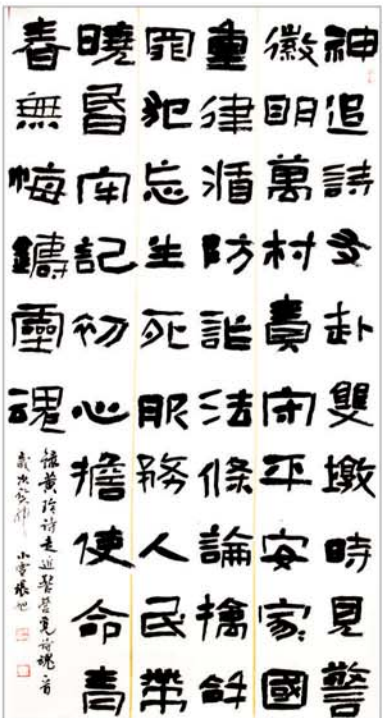 神追詩友赴雙墩時見警
徽明萬村責守平安家國
重律循防詐法條論擒
罪犯忘生死服務人民帶
曉昏牢記初心擔使命青
春無悔鑄靈魂
錄黃玲詩走進警營覓詩魂一首
歲次癸卯小雪張旭